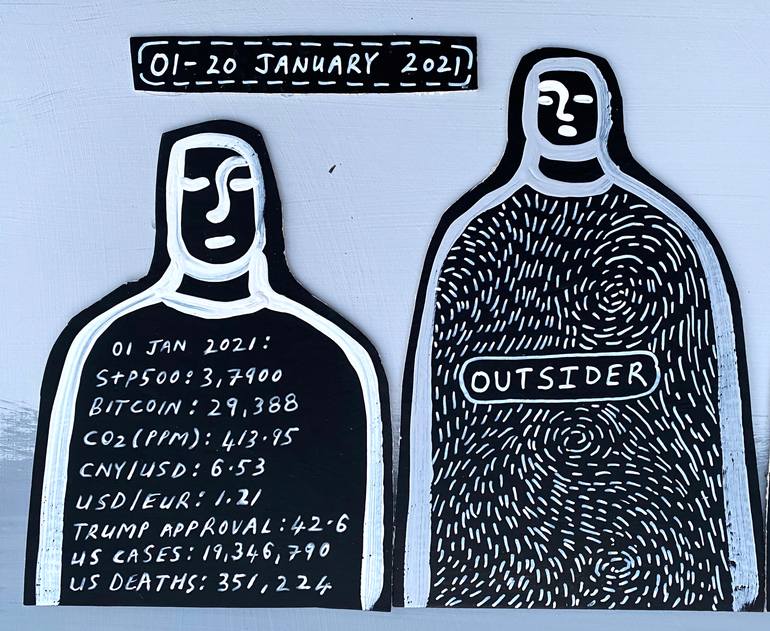 01-20 JANUARY 2021
01 JAN 2021:
S+P500: 3,7900
BITCOIN: 29,388
CO2(PPM): 413.95
CNY/USD: 6.53
USD/EUR: 1.21
TRUMP APPROVAL: 42.6
US CASES: 19,346,790
US DEATHS: 351,224
OUTSIDER